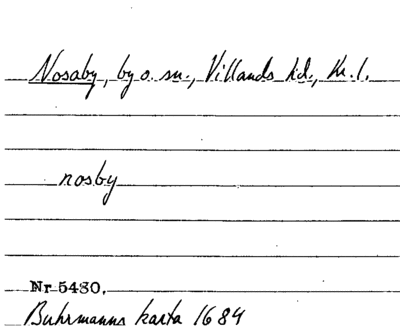 Nosaby, by o. sn., Villands hd., Kr. l.
nosby
Nr 5430.
Buhrmanns karta 1684